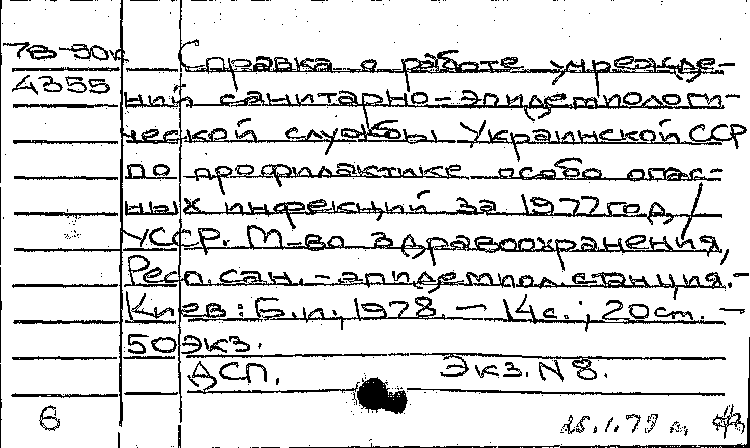 78-50к Справка о работе учрежде-
4355 ний санитарно-эпидемиологи-
ческой службы Украинской ССР
по профилактике особо опас-
ных инфекций за 1977 год /
УССР. М-во здравоохранения,
Респ. сан.-эпидемиол. станция.-
Киев: Б.и., 1978. - 14с.; 20ст. -
50 экз.
ДСП. Экз. N 8.
6 25.1.79 г.